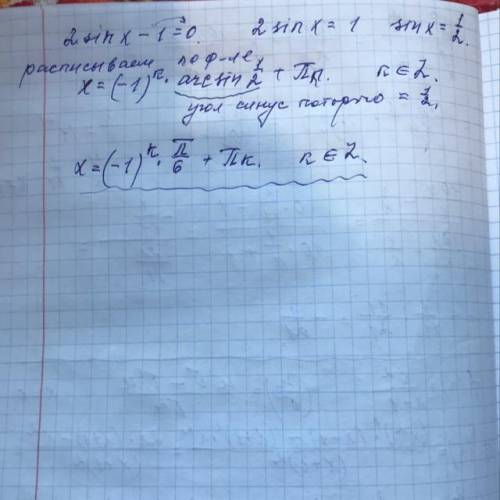 2 sin x - 1 = 0. 2 sin x = 1 sin x = 1/2.
расписываем по ф-ле
x = (-1)^к · arcsin 1/2 + Πк. к ∈ Z.
угол синус которого = 1/2.
x = (-1)^к · π/6 + Πк. к ∈ Z.